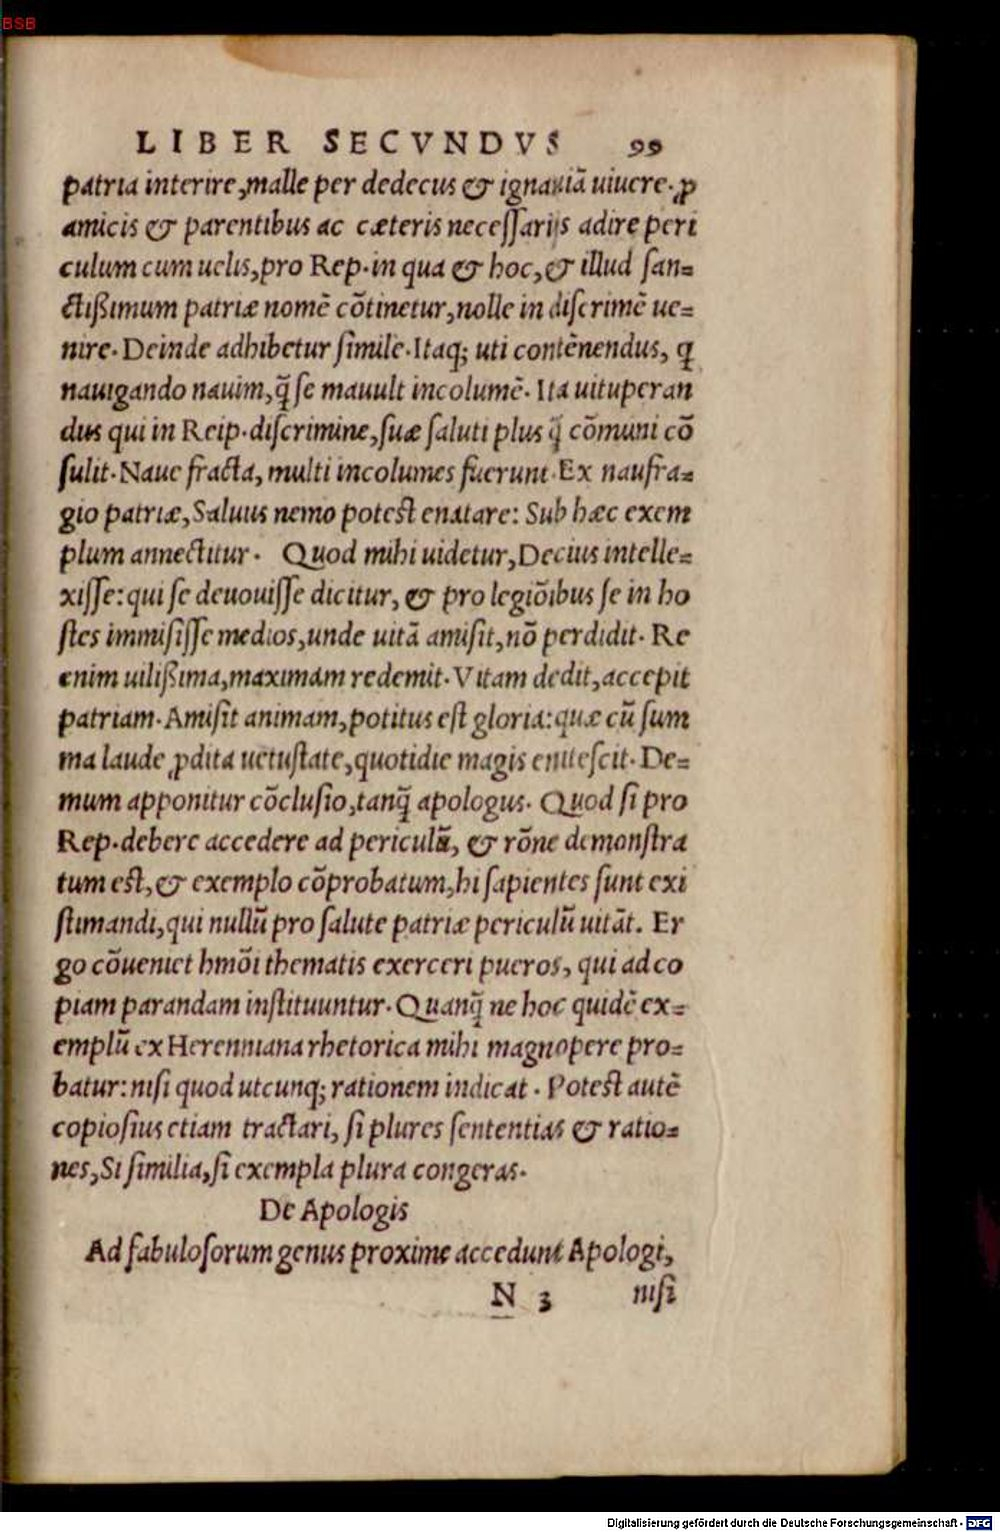 BSB
LIBER SECVNDVS 99
patria interire, malle per dedecus & ignauiã uiuere. ꝓ
amicis & parentibus ac cæteris neceſſarijs adire peri
culum cum uelis, pro Rep. in qua & hoc, & illud ſan=
ctißimum patriæ nomẽ cõtinetur, nolle in diſcrimẽ ue=
nire. Deinde adhibetur ſimile. Itaq; uti contẽnendus, q
nauigando nauim, q̃ ſe mauult incolumẽ. Ita uituperan
dus qui in Reip. diſcrimine, ſuæ ſaluti plus q̃ cõmuni cõ
ſulit. Naue fracta, multi incolumes fuerunt. Ex naufra=
gio patriæ, Saluus nemo poteſt enatare: Sub hæc exem
plum annectitur. Quod mihi uidetur, Decius intelle=
xiſſe: qui ſe deuouiſſe dicitur, & pro legiõibus ſe in ho
ſtes immiſiſſe medios, unde uitã amiſit, nõ perdidit. Re
enim uilißima, maximam redemit. Vitam dedit, accepit
patriam. Amiſit animam, potitus eſt gloria: quæ cũ ſum
ma laude ꝓdita uetuſtate, quotidie magis eniteſcit. De=
mum apponitur cõcluſio, tanq̃ apologus. Quod ſi pro
Rep. debere accedere ad periculũ, & rõne demonſtra
tum eſt, & exemplo cõprobatum, hi ſapientes ſunt exi
ſtimandi, qui nullũ pro ſalute patriæ periculũ uitãt. Er
go cõueniet hmõi thematis exerceri pueros, qui ad co
piam parandam inſtituuntur. Quanq̃ ne hoc quidẽ ex=
emplũ ex Herenniana rhetorica mihi magnopere pro=
batur: niſi quod utcunq; rationem indicat. Poteſt autẽ
copioſius etiam tractari, ſi plures ſententias & ratio=
nes, Si ſimilia, ſi exempla plura congeras.
De Apologis
Ad fabuloſorum genus proxime accedunt Apologi,
N 3 niſi
Digitalisierung gefördert durch die Deutsche Forschungsgemeinschaft - DFG